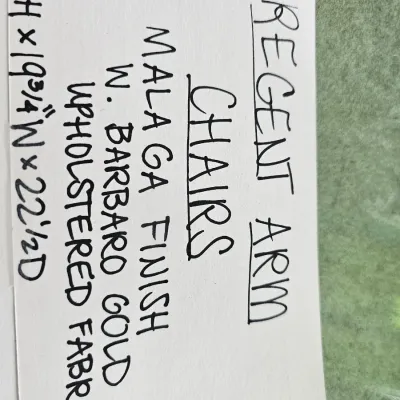 REGENT ARM
CHAIRS
MALAGA FINISH
W. BARBARO GOLD
UPHOLSTERED FABR
H x 19 3/4" W x 22 1/2 D